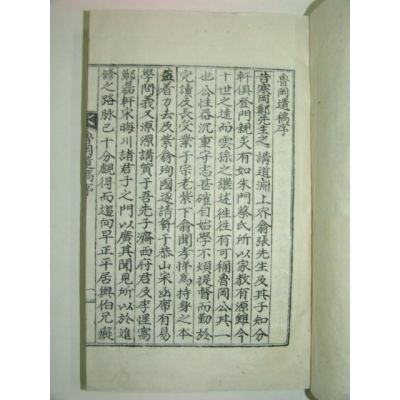 魯岡遺稿序
昔寒岡鄭先生之講道淵上翁張先生及其子知分
軒俱登門親炙有如朱門蔡氏所以家教有源雖今
十世之遠而雲孫之繼述徃徃有可稱魯岡公其一
也公性器沉重守志甚確自始學不煩提督而勤於
究讀及長受業于宗老紫下翁聞孝悌爲持身之本
益着力去及紫翁殉國遂請贄于恭山宋
學問我又源源講質于吾先子濟西府君及李惺窩
鄭磊軒宋晦川諸君子之門以廣其聞見所以於進
修之路脉已十分覰得而遄向早正平居與伯兄癡
魯岡遺稿序
一